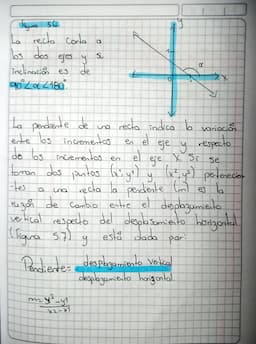 Figura 56
La recta corta a
los dos ejes y su
inclinación es de
90°<α<180°
y
α
x
La pendiente de una recta indica la variación
entre los incrementos en el eje y respecto
de los incrementos en el eje X. Si se
toman dos puntos (x¹,y¹) y (x²,y²) pertenecien
-tes a una recta la pendiente (m) es la
razón de cambio entre el desplazamiento
vertical respecto del desplazamiento horizontal
(figura 57) y está dada por:
Pendiente= desplazamiento vertical
desplazamiento horizontal
m= y²-y¹
x2-x1